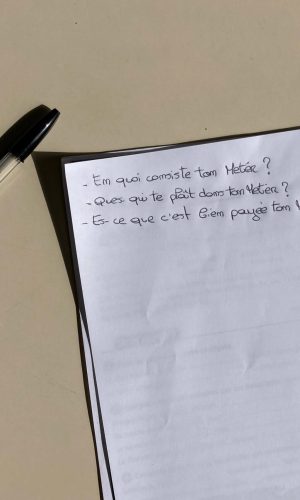 - Em quoi comsiste tom Metér ?
- Ques qui te plaît doms tom Meter ?
- Es-ce que c'est biem payée tom